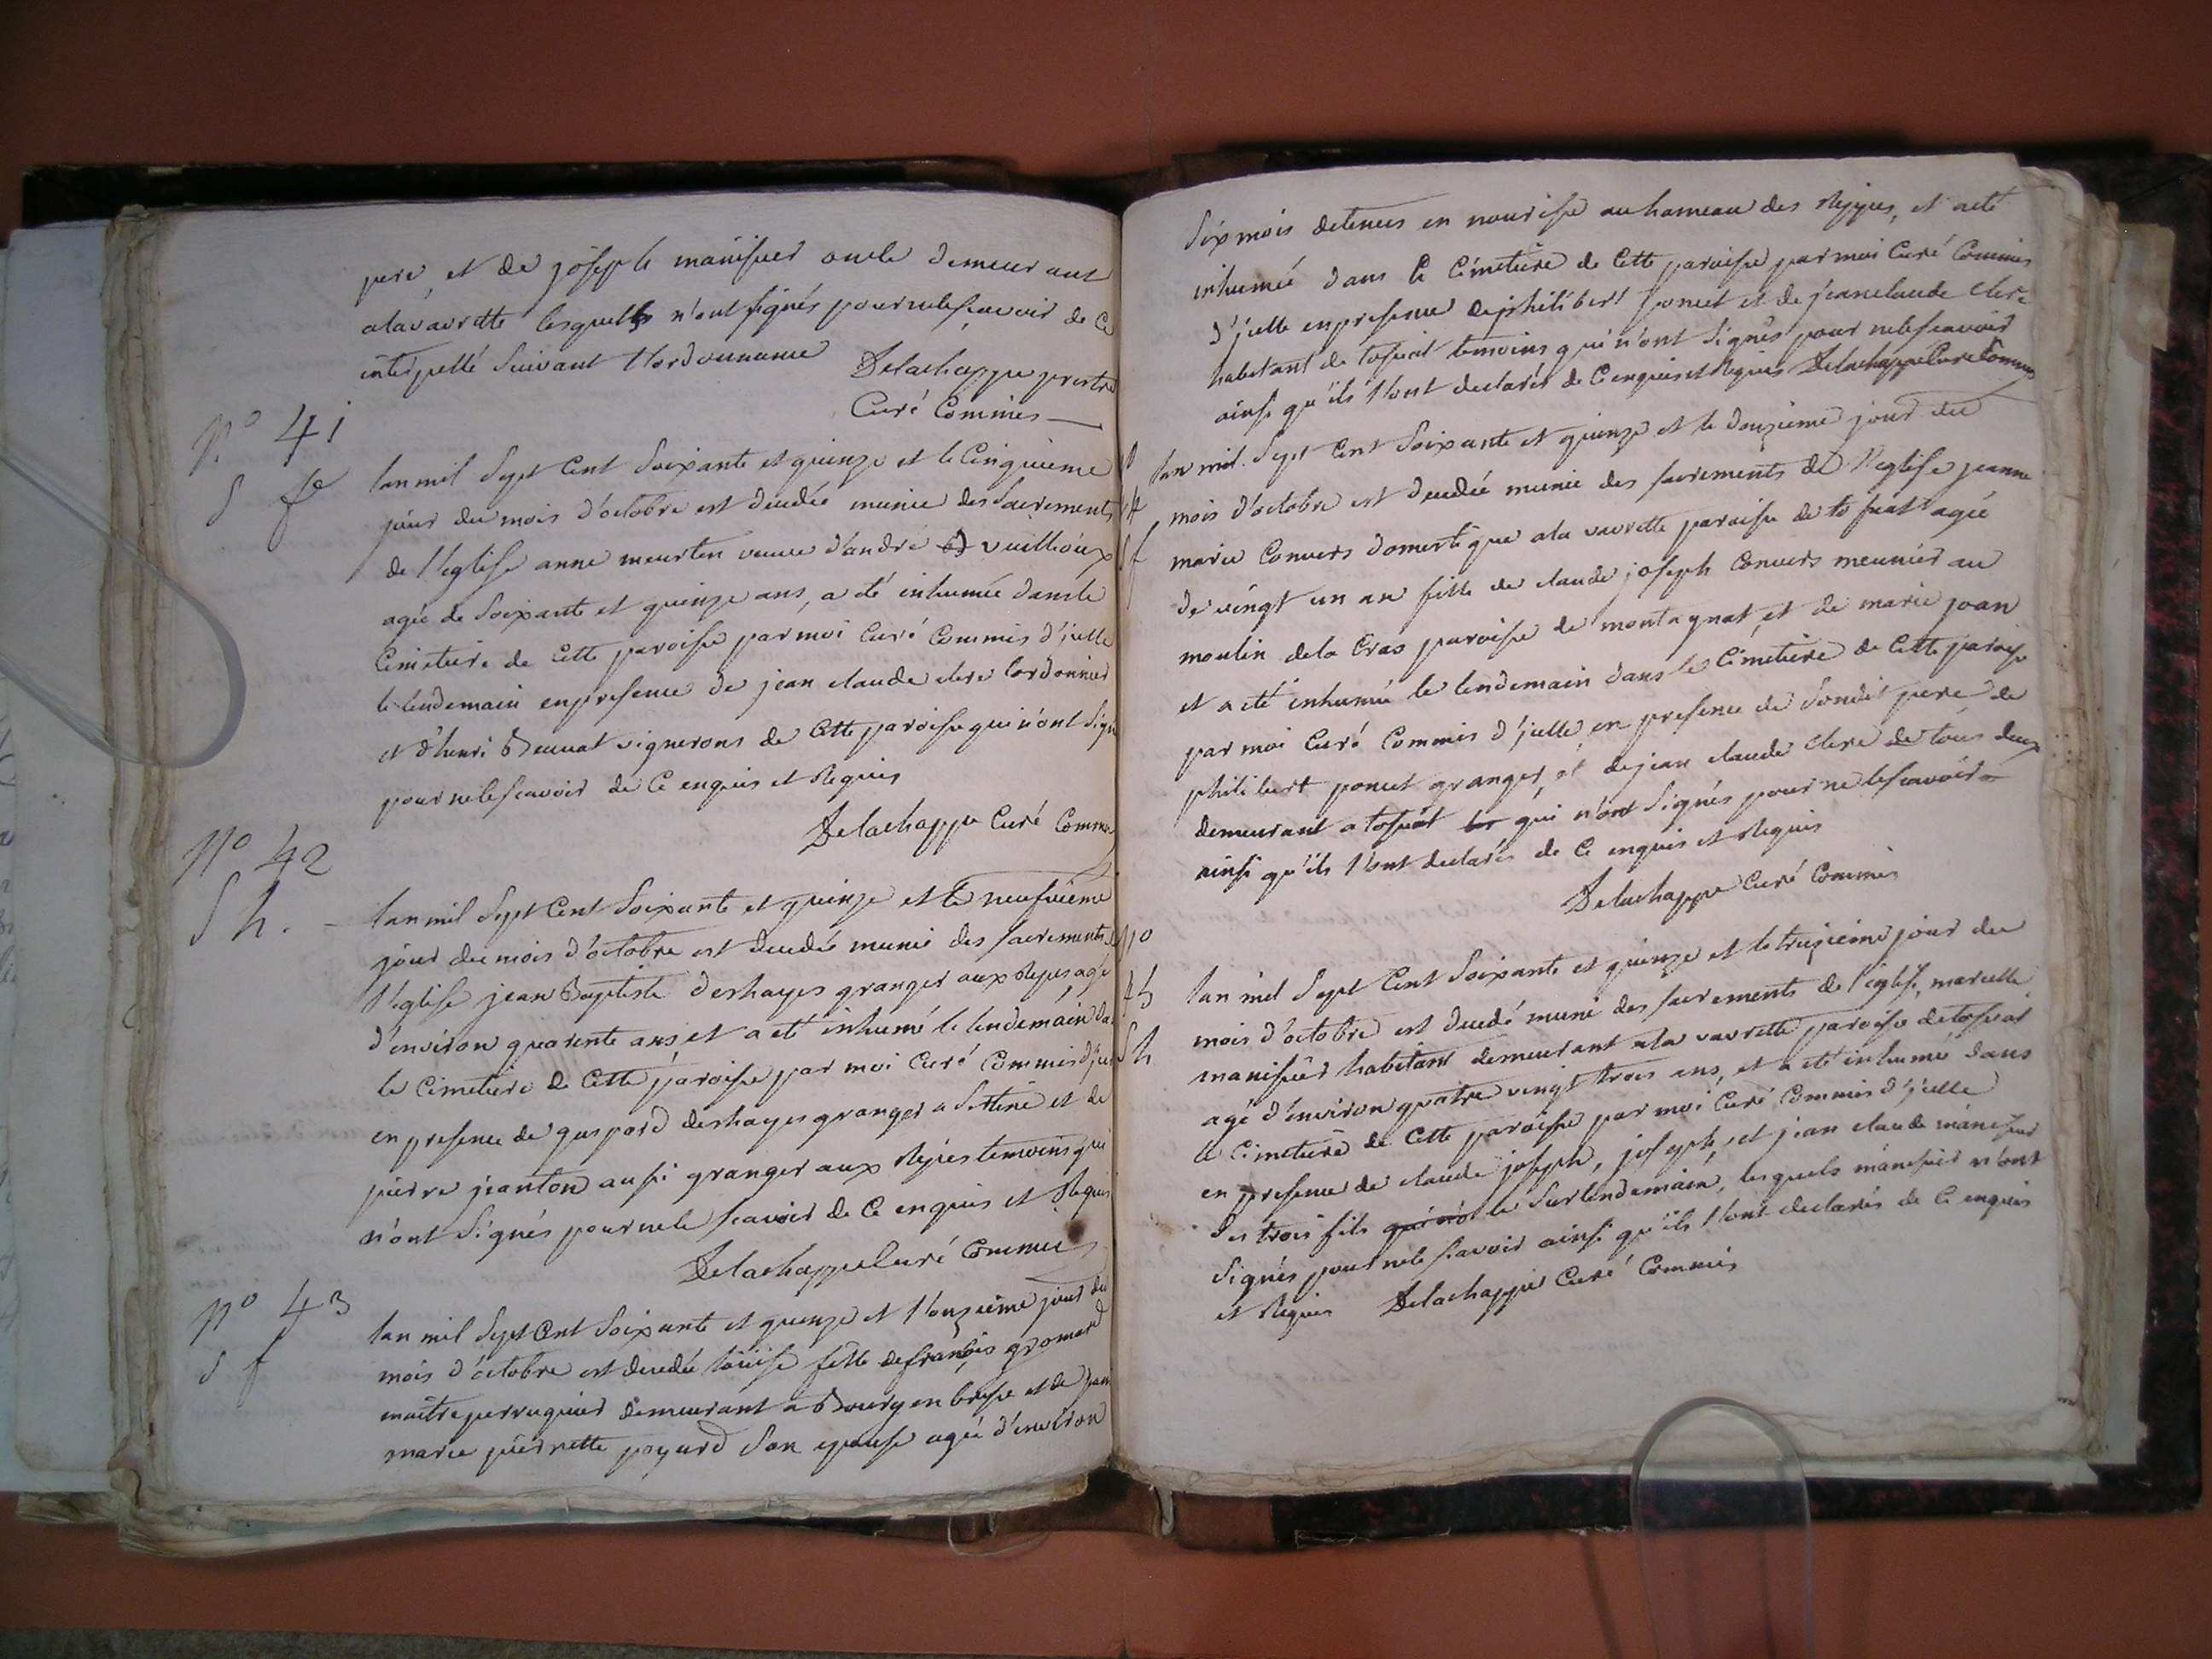 pere, et de joseph manissier oncle demeurant
alavavrette lesquels n'ont signés pour nele scavoir de ce
interpellé Suivant l'ordonnance Delachappe prestre
Curé Commis
N° 41
S fe
lan mil Sept Cent Soixante et quinze et le Cinquieme
jour du mois d'octobre est decedée munie des Sacrements
de l'eglise anne meurten veuve d'andré vuillioux
agée de Soixante et quinze ans, a été inhumée dans le
Cimetiere de Cette paroisse par moi Curé Commis d'jcelle
le lendemain en presence de jean claude clere Cordonnier
et d'henri Beuvat vignerons de Cette paroisse qui n'ont Signé
pour nele scavoir de Ce enquis et Requis
Delachappe Curé Commis
N° 42
S h.
lan mil Sept Cent Soixante et quinze et le neufvieme
jour du mois d'octobre est decedé munie des sacrements de
l'eglise jean Baptiste deshayes granger aux Repes, agé
d'environ quarente ans et a eté inhumé le lendemain da
le Cimetiere de Cette paroisse par moi Curé Commis d'jce
en presence de gaspard deshayes granger a Sertine et de
pierre jeanton aussi granger aux Repes temoins qui
n'ont Signés pour nele scavoir de Ce enquis et Requis
Delachappe Curé Commis
N° 43
S f
lan mil Sept Cent Soixante et quinze et l'onzieme jour du
mois d'octobre est decedée loüise fille de françois gromard
maitre perruquier demeurant a Bourg en bresse et de
marie pierrette poyard Son epouse agée d'environ
Six mois detenue en nourisse au hameau des Repes, et a eté
inhumée dans le Cimetiere de Cette paroisse par moi Curé Commis
d'jcelle en presence de philibert poncet et de jeanclaude clere
habitant de tossiat temoins qui n'ont Signés pour nele scavoir
ainsi qu'ils l'ont declarés de Ce enquis et Requis Delachappe Curé Commis
N°
44
S f
lan mil Sept Cent Soixante et quinze et le douzieme jour du
mois d'octobre est decedée munie des sacrements de l'eglise jeanne
marie Convers domestique ala vavrette paroisse de tossiat agée
de vingt un an fille de claude joseph Convers meunier au
moulin dela Cras paroisse de montagnat, et de marie joan
et a eté inhumée le lendemain dans le Cimetiere de Cette paroisse
par moi Curé Commis d'jcelle, en presence de Sondit pere de
philibert poncet granger, et de jean claude clere de tous deux
demeurant a tossiat qui n'ont Signés pour ne le scavoir
ainsi qu'ils l'ont declarés de Ce enquis et Requis
Delachappe Curé Commis
N°
45
S h
lan mil Sept Cent Soixante et quinze et le treizieme jour du
mois d'octobre est decedé muni des sacrements de l'eglise, marcelle
manissier habitant demeurant ala vavrette paroisse de tossiat
agé d'environ quatre vingt trois ans, et a eté inhumé dans
le Cimetiere de Cette paroisse par moi Curé Commis d'jcelle
en presence de claude joseph, joseph, et jean claude manissier
Ses trois fils le Surlendemain, lesquels manissier n'ont
Signés pour nele scavoir ainsi qu'ils l'ont declarés de Ce enquis
et Requis Delachappe Curé Commis